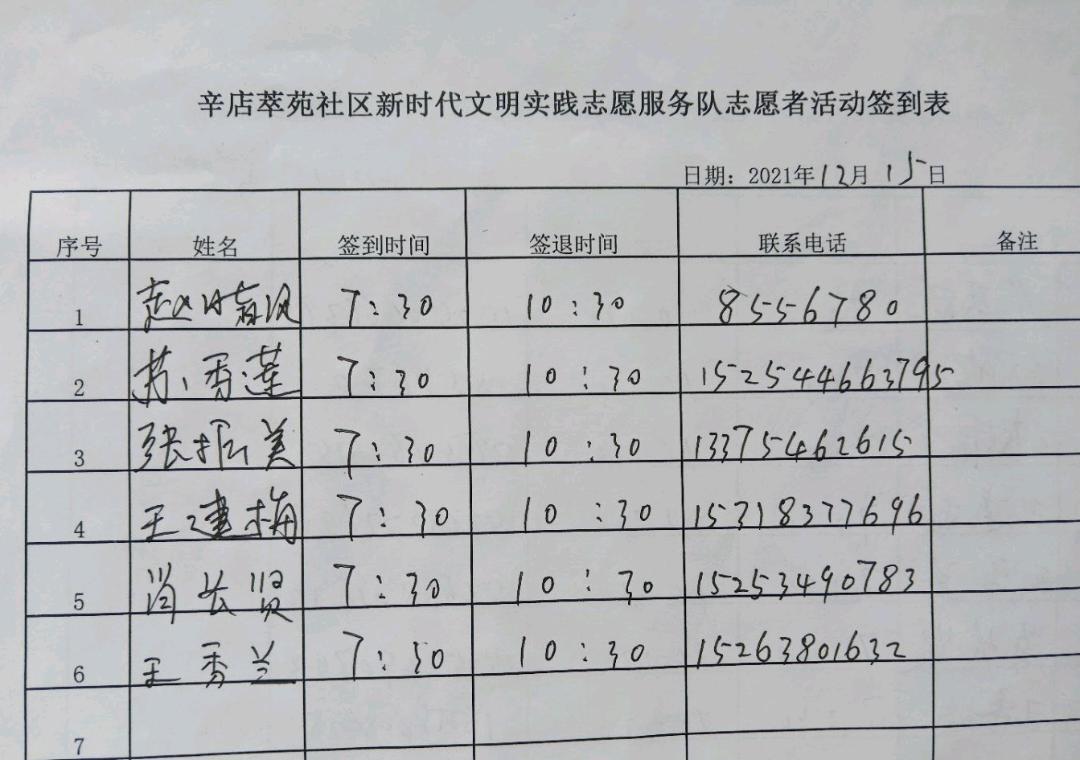 辛店萃苑社区新时代文明实践志愿服务队志愿者活动签到表
日期：2021年12月15日
序号 姓名 签到时间 签退时间 联系电话 备注
1 7:30 10:30 8556780
2 苏香莲 7:30 10:30 152544663795
3 张振美 7:30 10:30 13375462615
4 王建梅 7:30 10:30 15318377696
5 肖长贤 7:30 10:30 15253490783
6 王秀兰 7:30 10:30 15263801632
7